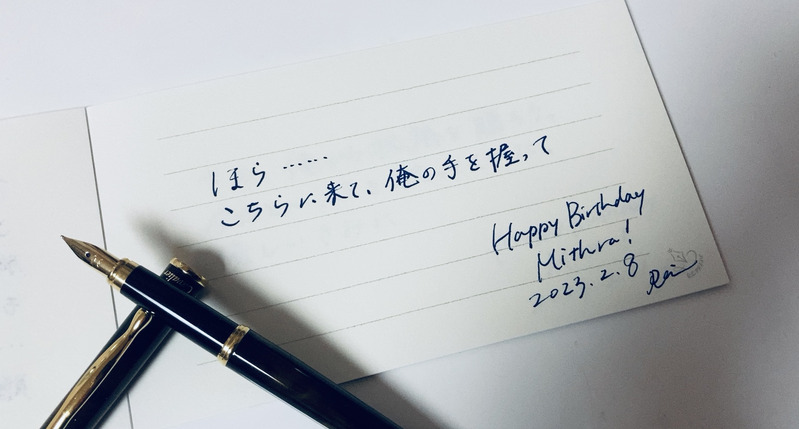 ほら……
こちらに来て、俺の手を握って
Happy Birthday
Mithra!
2023.2.8